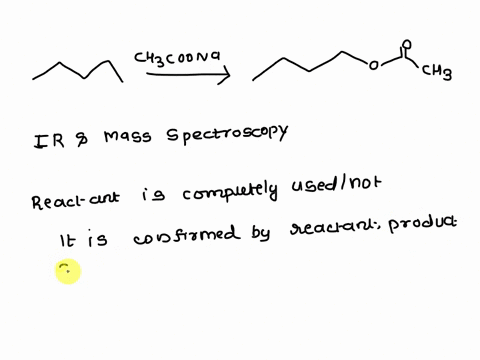 CH3COONa
O
O
CH3
IR & Mass Spectroscopy
Reactant is completely used/not
It is confirmed by reactant, product